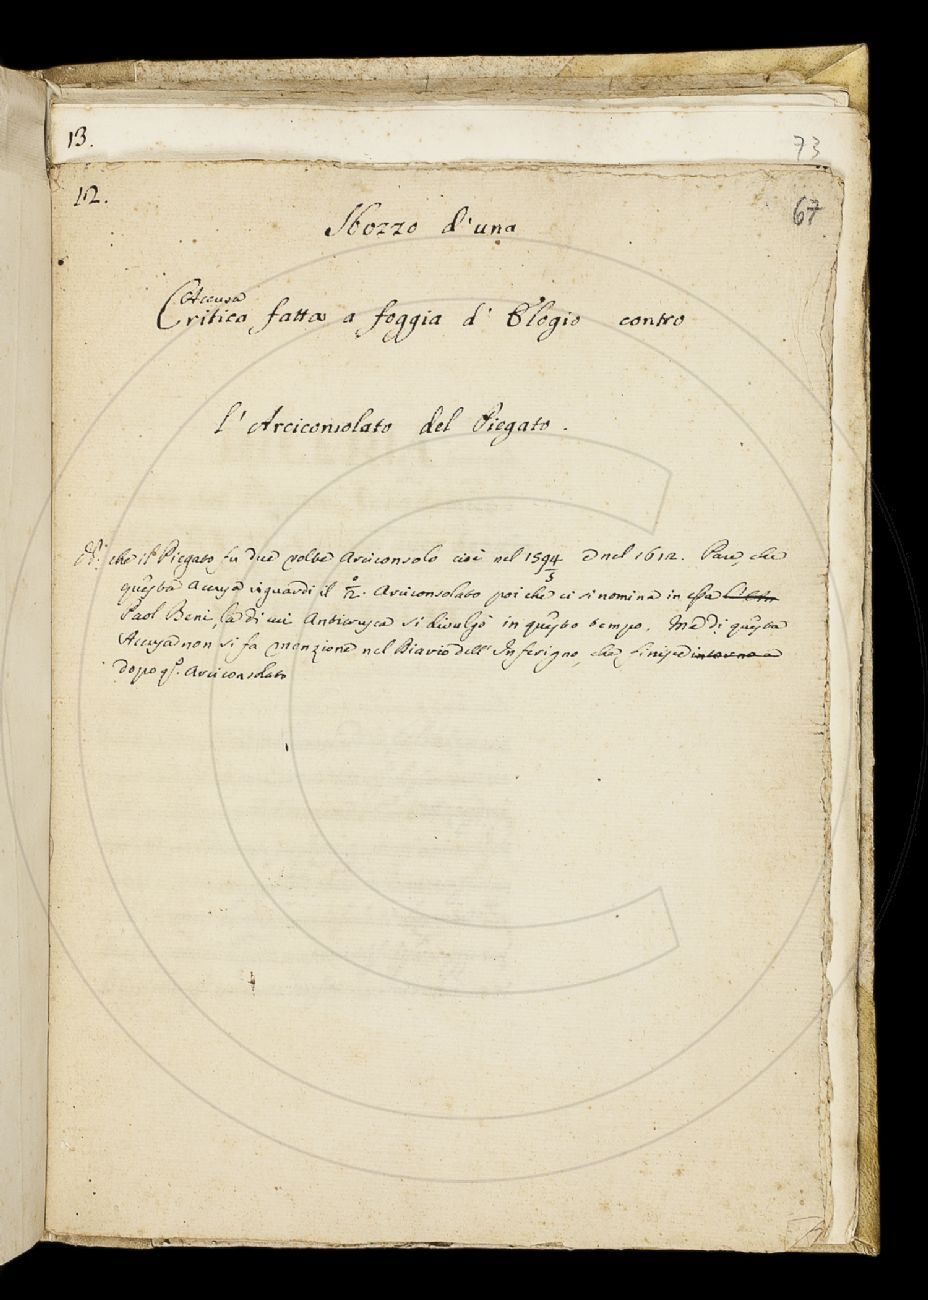 13.
73
12.
67
Sbozzo d'una
Accusa
Critica fatta a foggia d'Elogio contro
l'Arciconsolato del Piegato.
che il Piegato fu due volte Arciconsolo cioè nel 1594/5 e nel 1612. Pare, che
questa Accusa riguardi il 2.º Arciconsolato poiche ci si nomina in essa
Paol Beni, la di cui Anticrusca si divulgò in questo tempo. Ma di questa
Accusa non si fa menzione nel Diario dell'Inferigno, che finisce intorno a
dopo qº. Arciconsolato